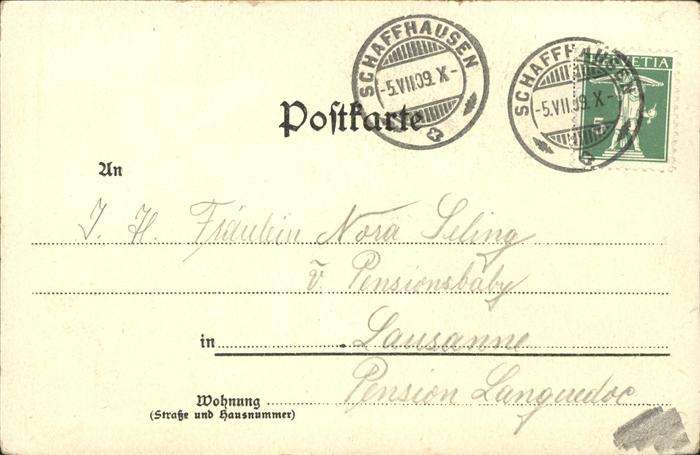 SCHAFFHAUSEN
-5.VII.09. X-
SCHAFFHAUSEN
-5.VII.09. X-
HELVETIA
5
Postkarte
An
J. H. Fräulein Nora Seling
v. Pensionsbaby
in Lausanne
Pension Languedoc
Wohnung
(Straße und Hausnummer)